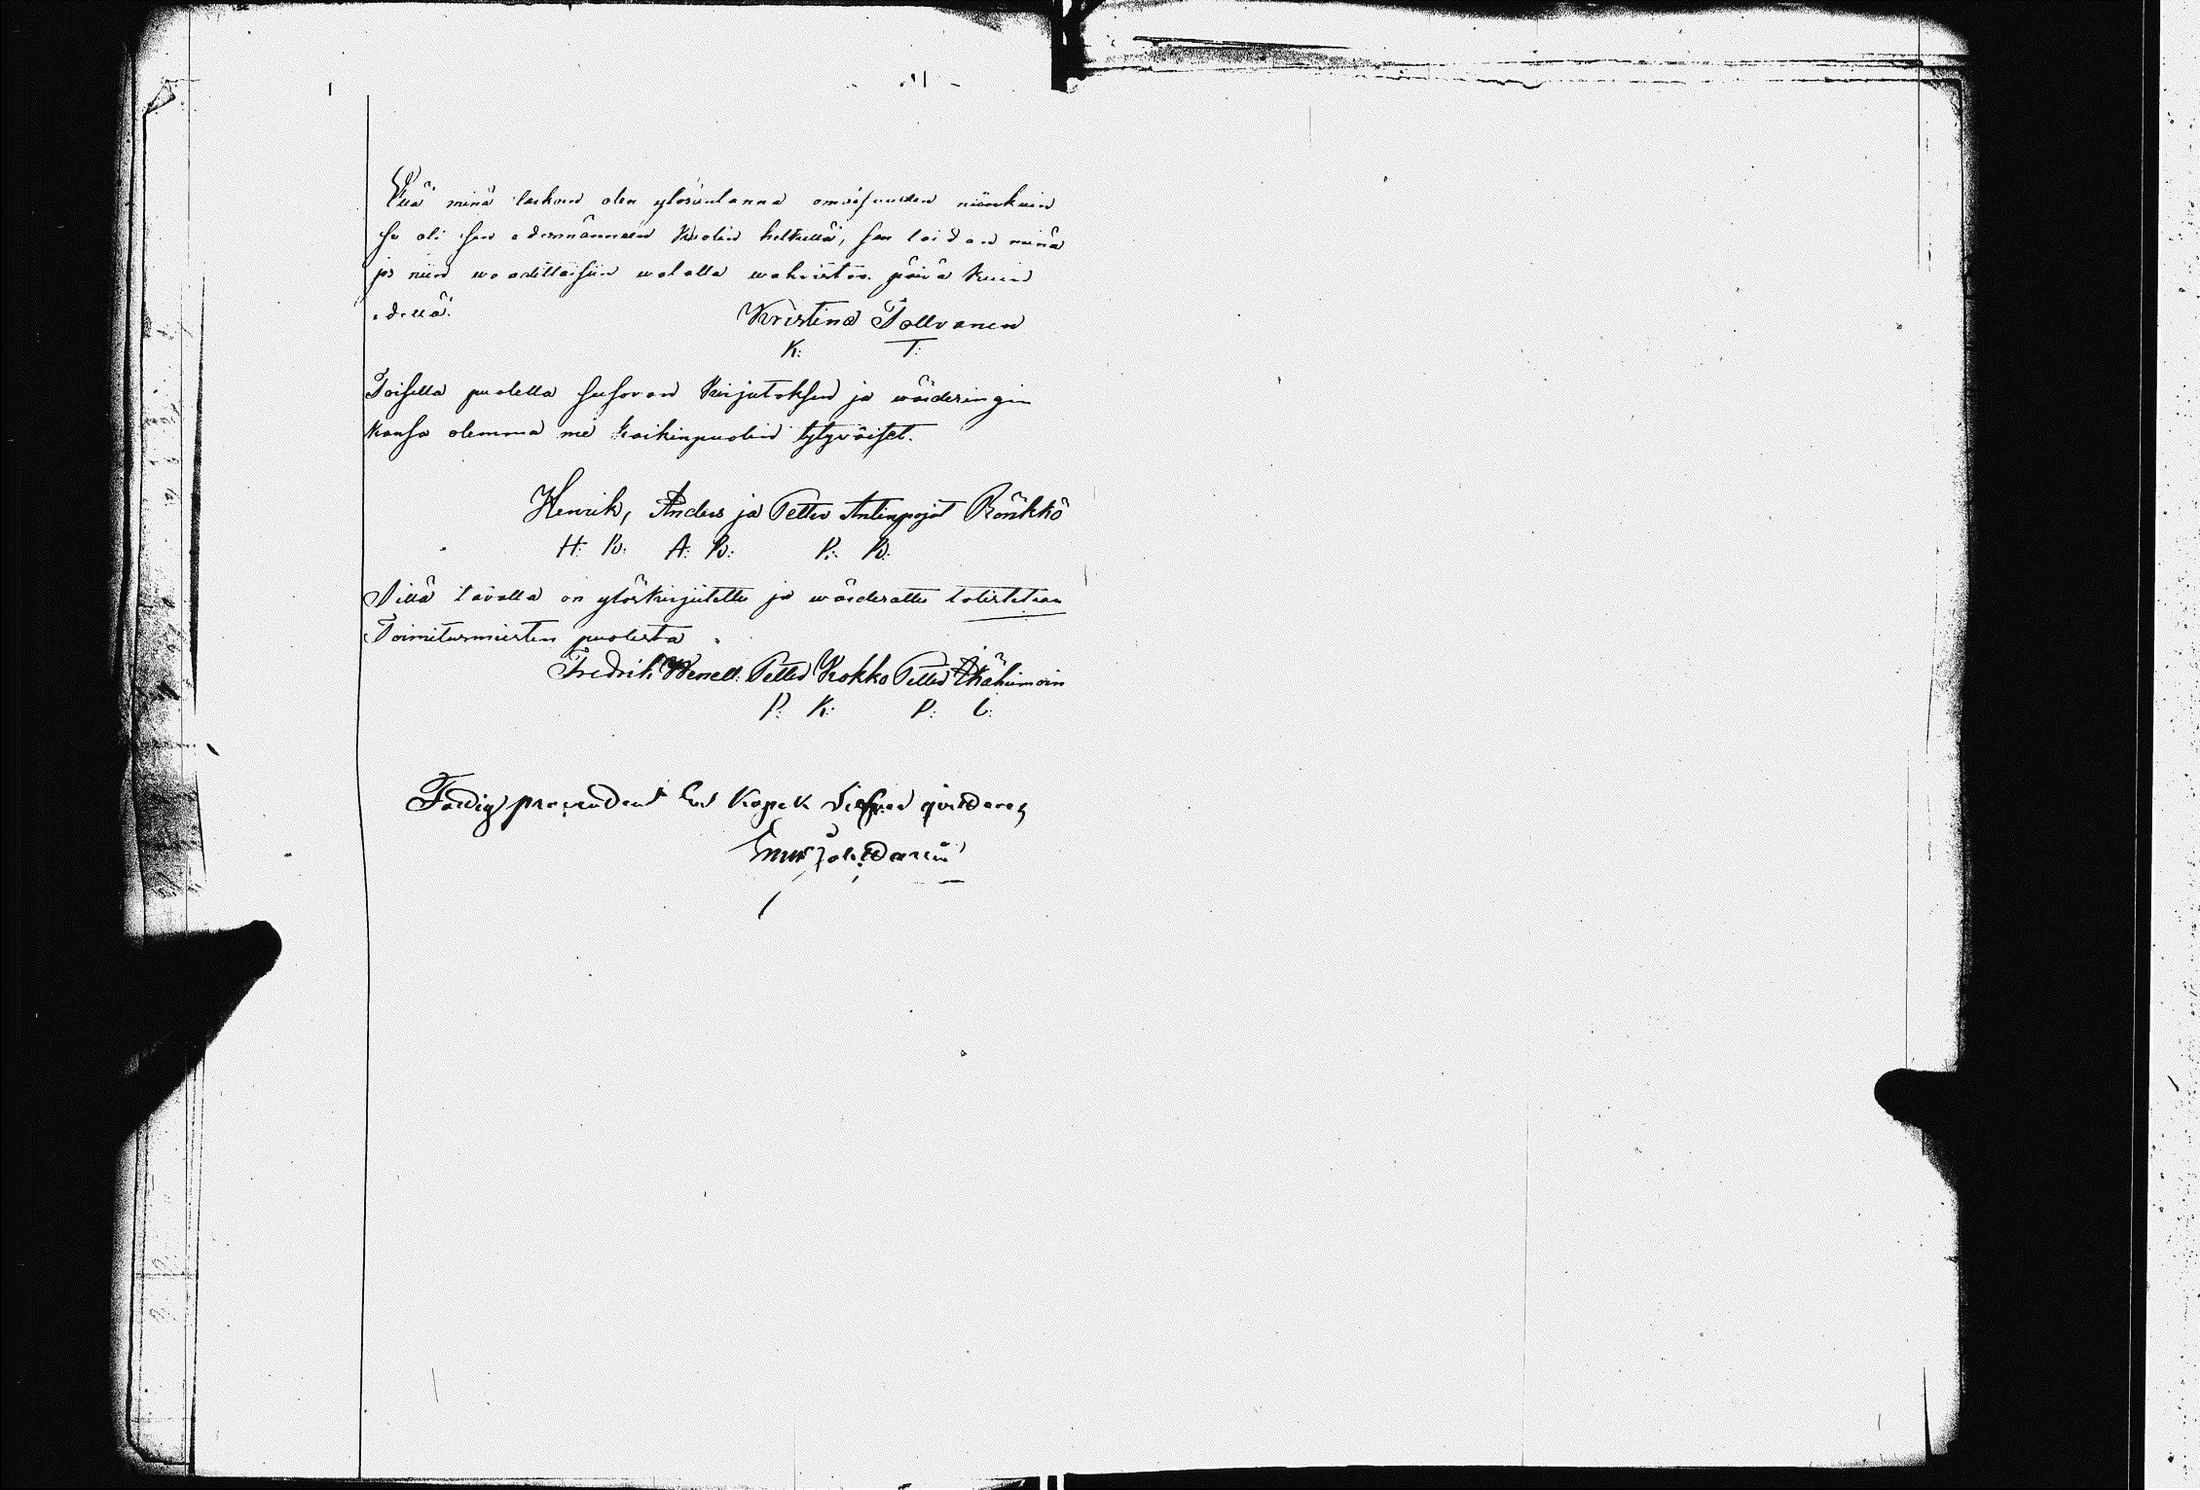 Että minä laskun olen ylösantanna omaisuuden niinkuin
se oli sen edesmännään kuolin hetkellä, sen taidan minä
jos niin waadittaisiin walalla wahwistaa. päivä kuin
edellä.
Kristina Tollvanen
K: T:
Toisella puolella seisovan kirjutoksen ja wärderingin
kansa olemma me kaikinpuolin tytyväiset.
Henrik, Anders ja Petter Antinpojat Rönkkö
H: R: A: R: P: R:
Sillä tavalla on ylöskirjutettu ja wärderattu totistetaan
Toimitusmiesten puolesta
Fredrik Wenell. Petter Kokko Petter
P: K: P: L:
Fattig procenten kopek Silfver qvitteras